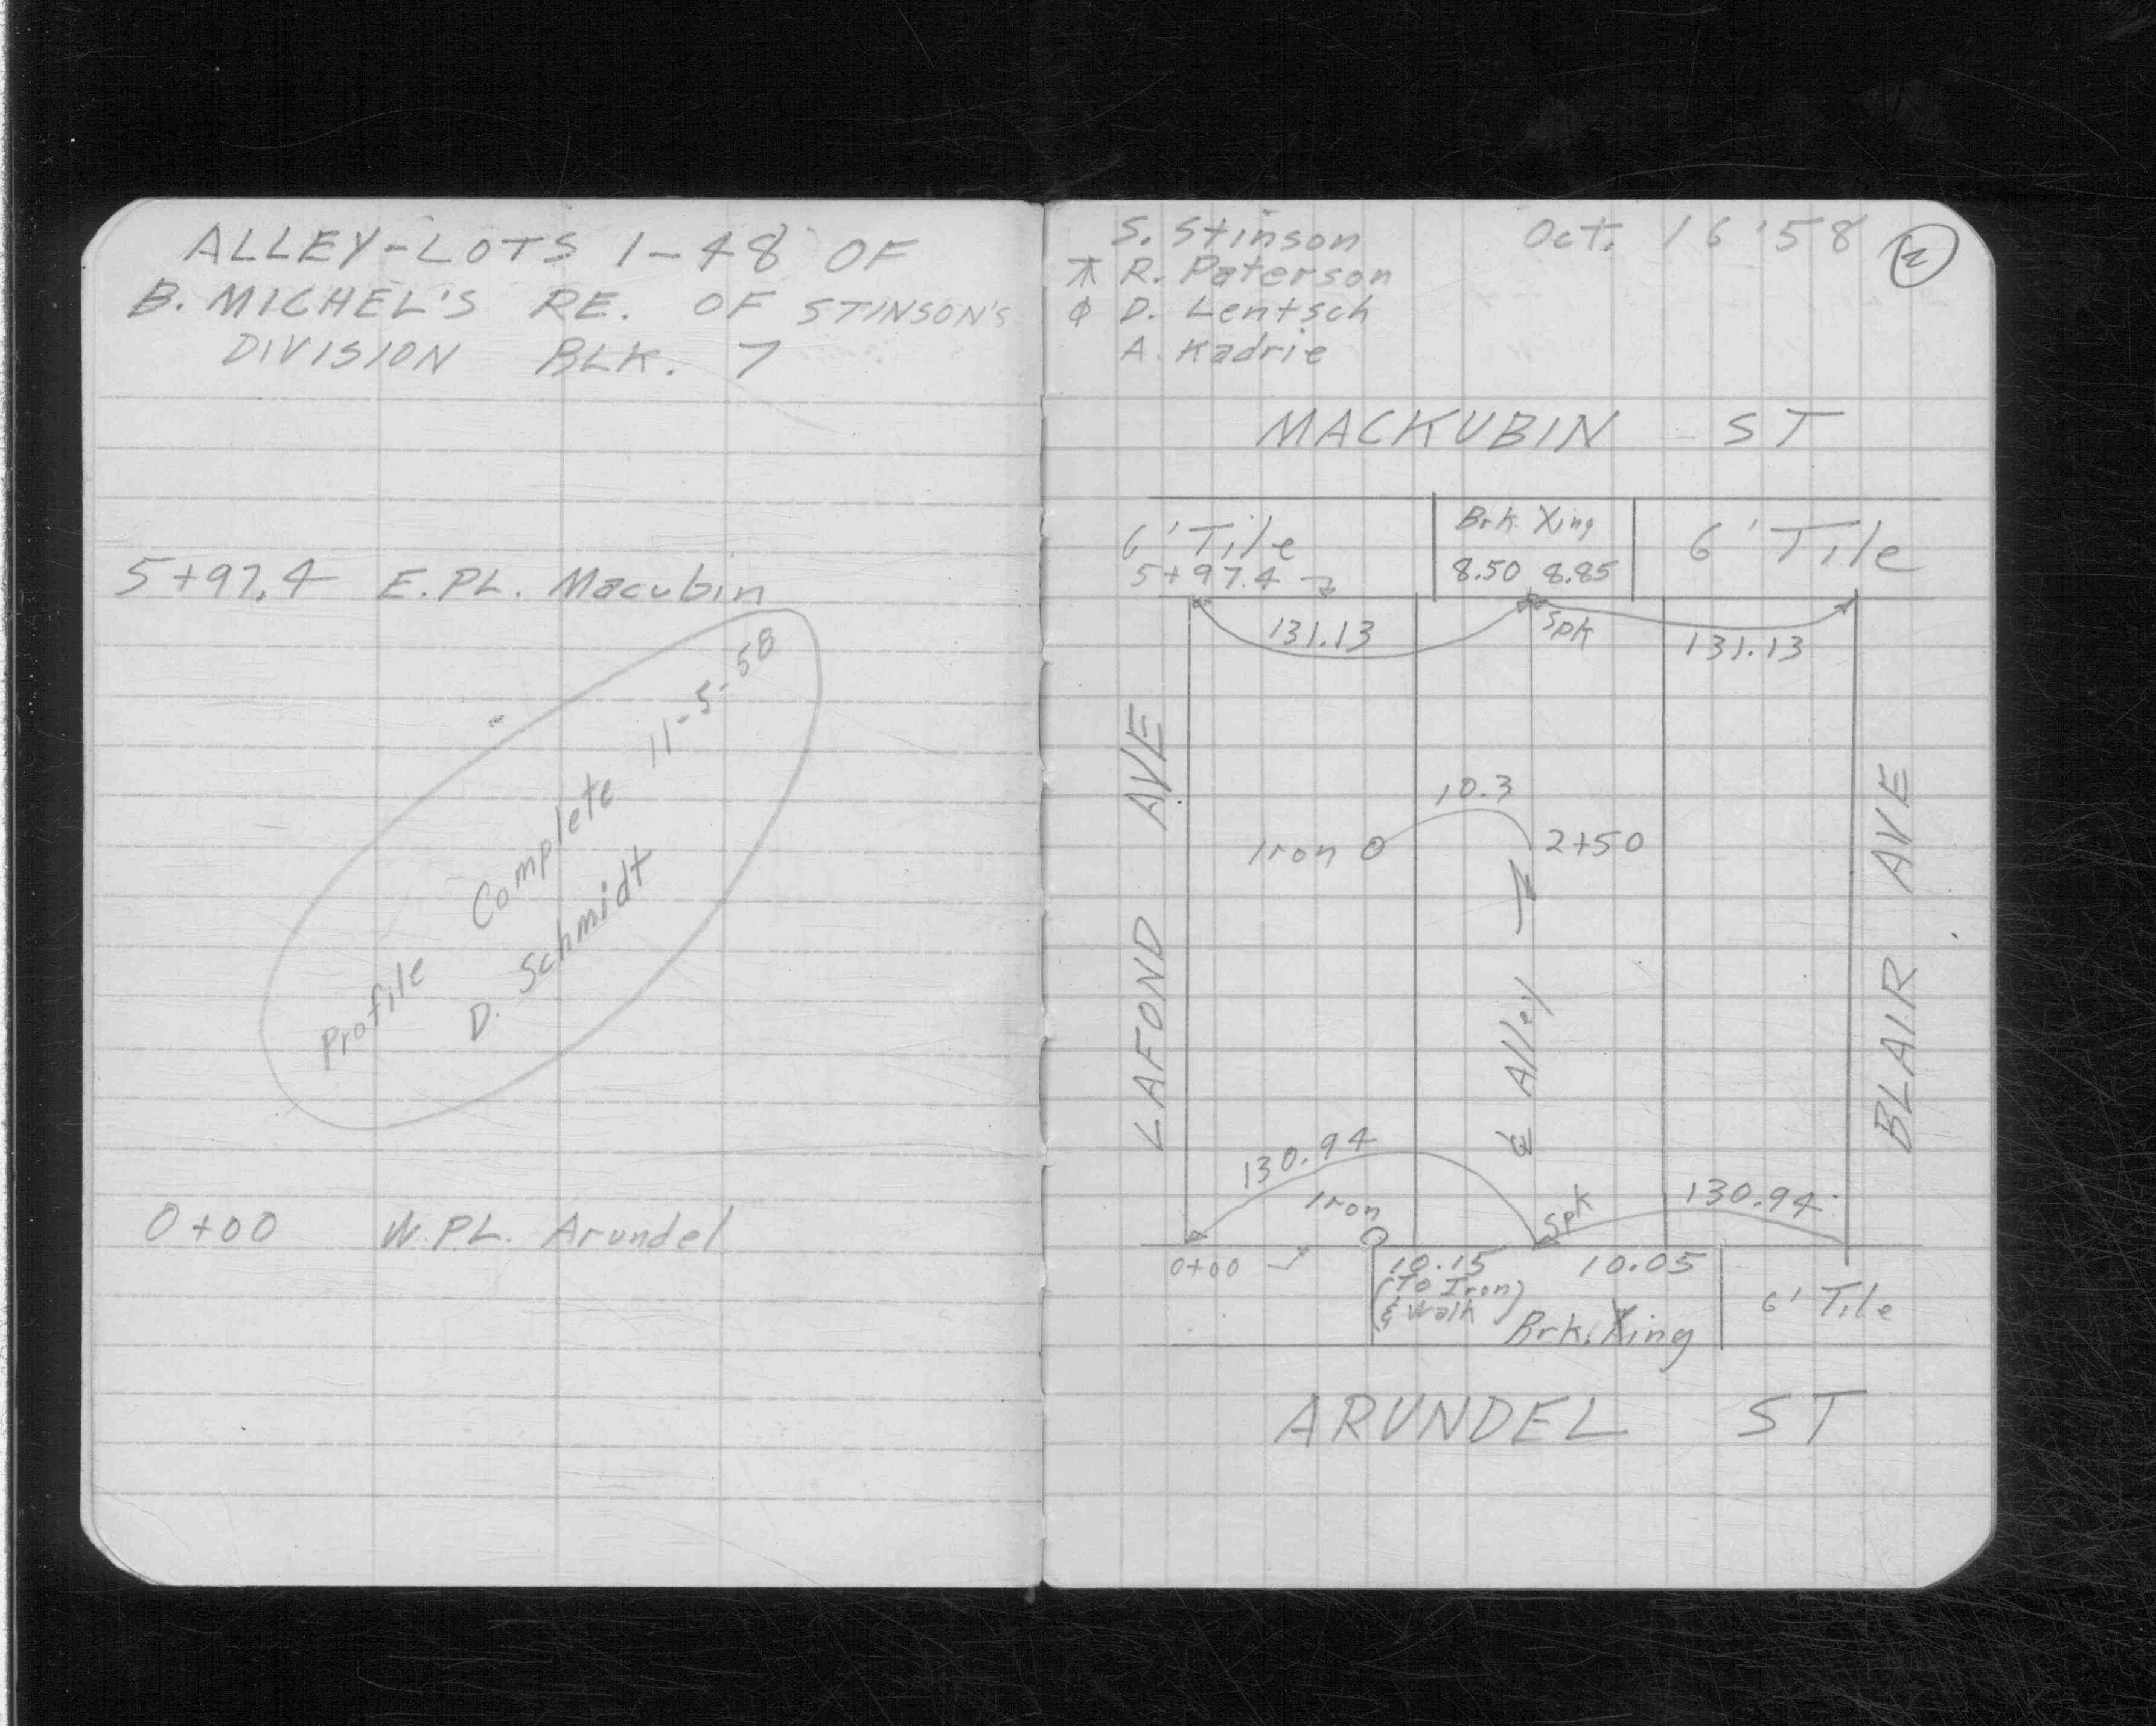 ALLEY-LOTS 1-48 OF
B. MICHEL'S RE. OF STINSON'S
DIVISION BLK. 7
5+97.4 E.PL. Macubin
Profile Complete 11-5-58
D. Schmidt
0+00 W.PL. Arundel
S. Stinson Oct. 16 '58
R. Paterson
ϕ D. Lentsch
A. Kadrie
MACKUBIN ST
6' Tile
5+97.4
Brk. Xing
8.50 8.85
6' Tile
131.13
Spk
131.13
LAFOND AVE
10.3
Iron
2+50
℄ Alley
BLAIR AVE
130.94
Iron
Spk
130.94
0+00
10.15
(To Iron)
& Walk
10.05
Brk. Xing
6' Tile
ARUNDEL ST